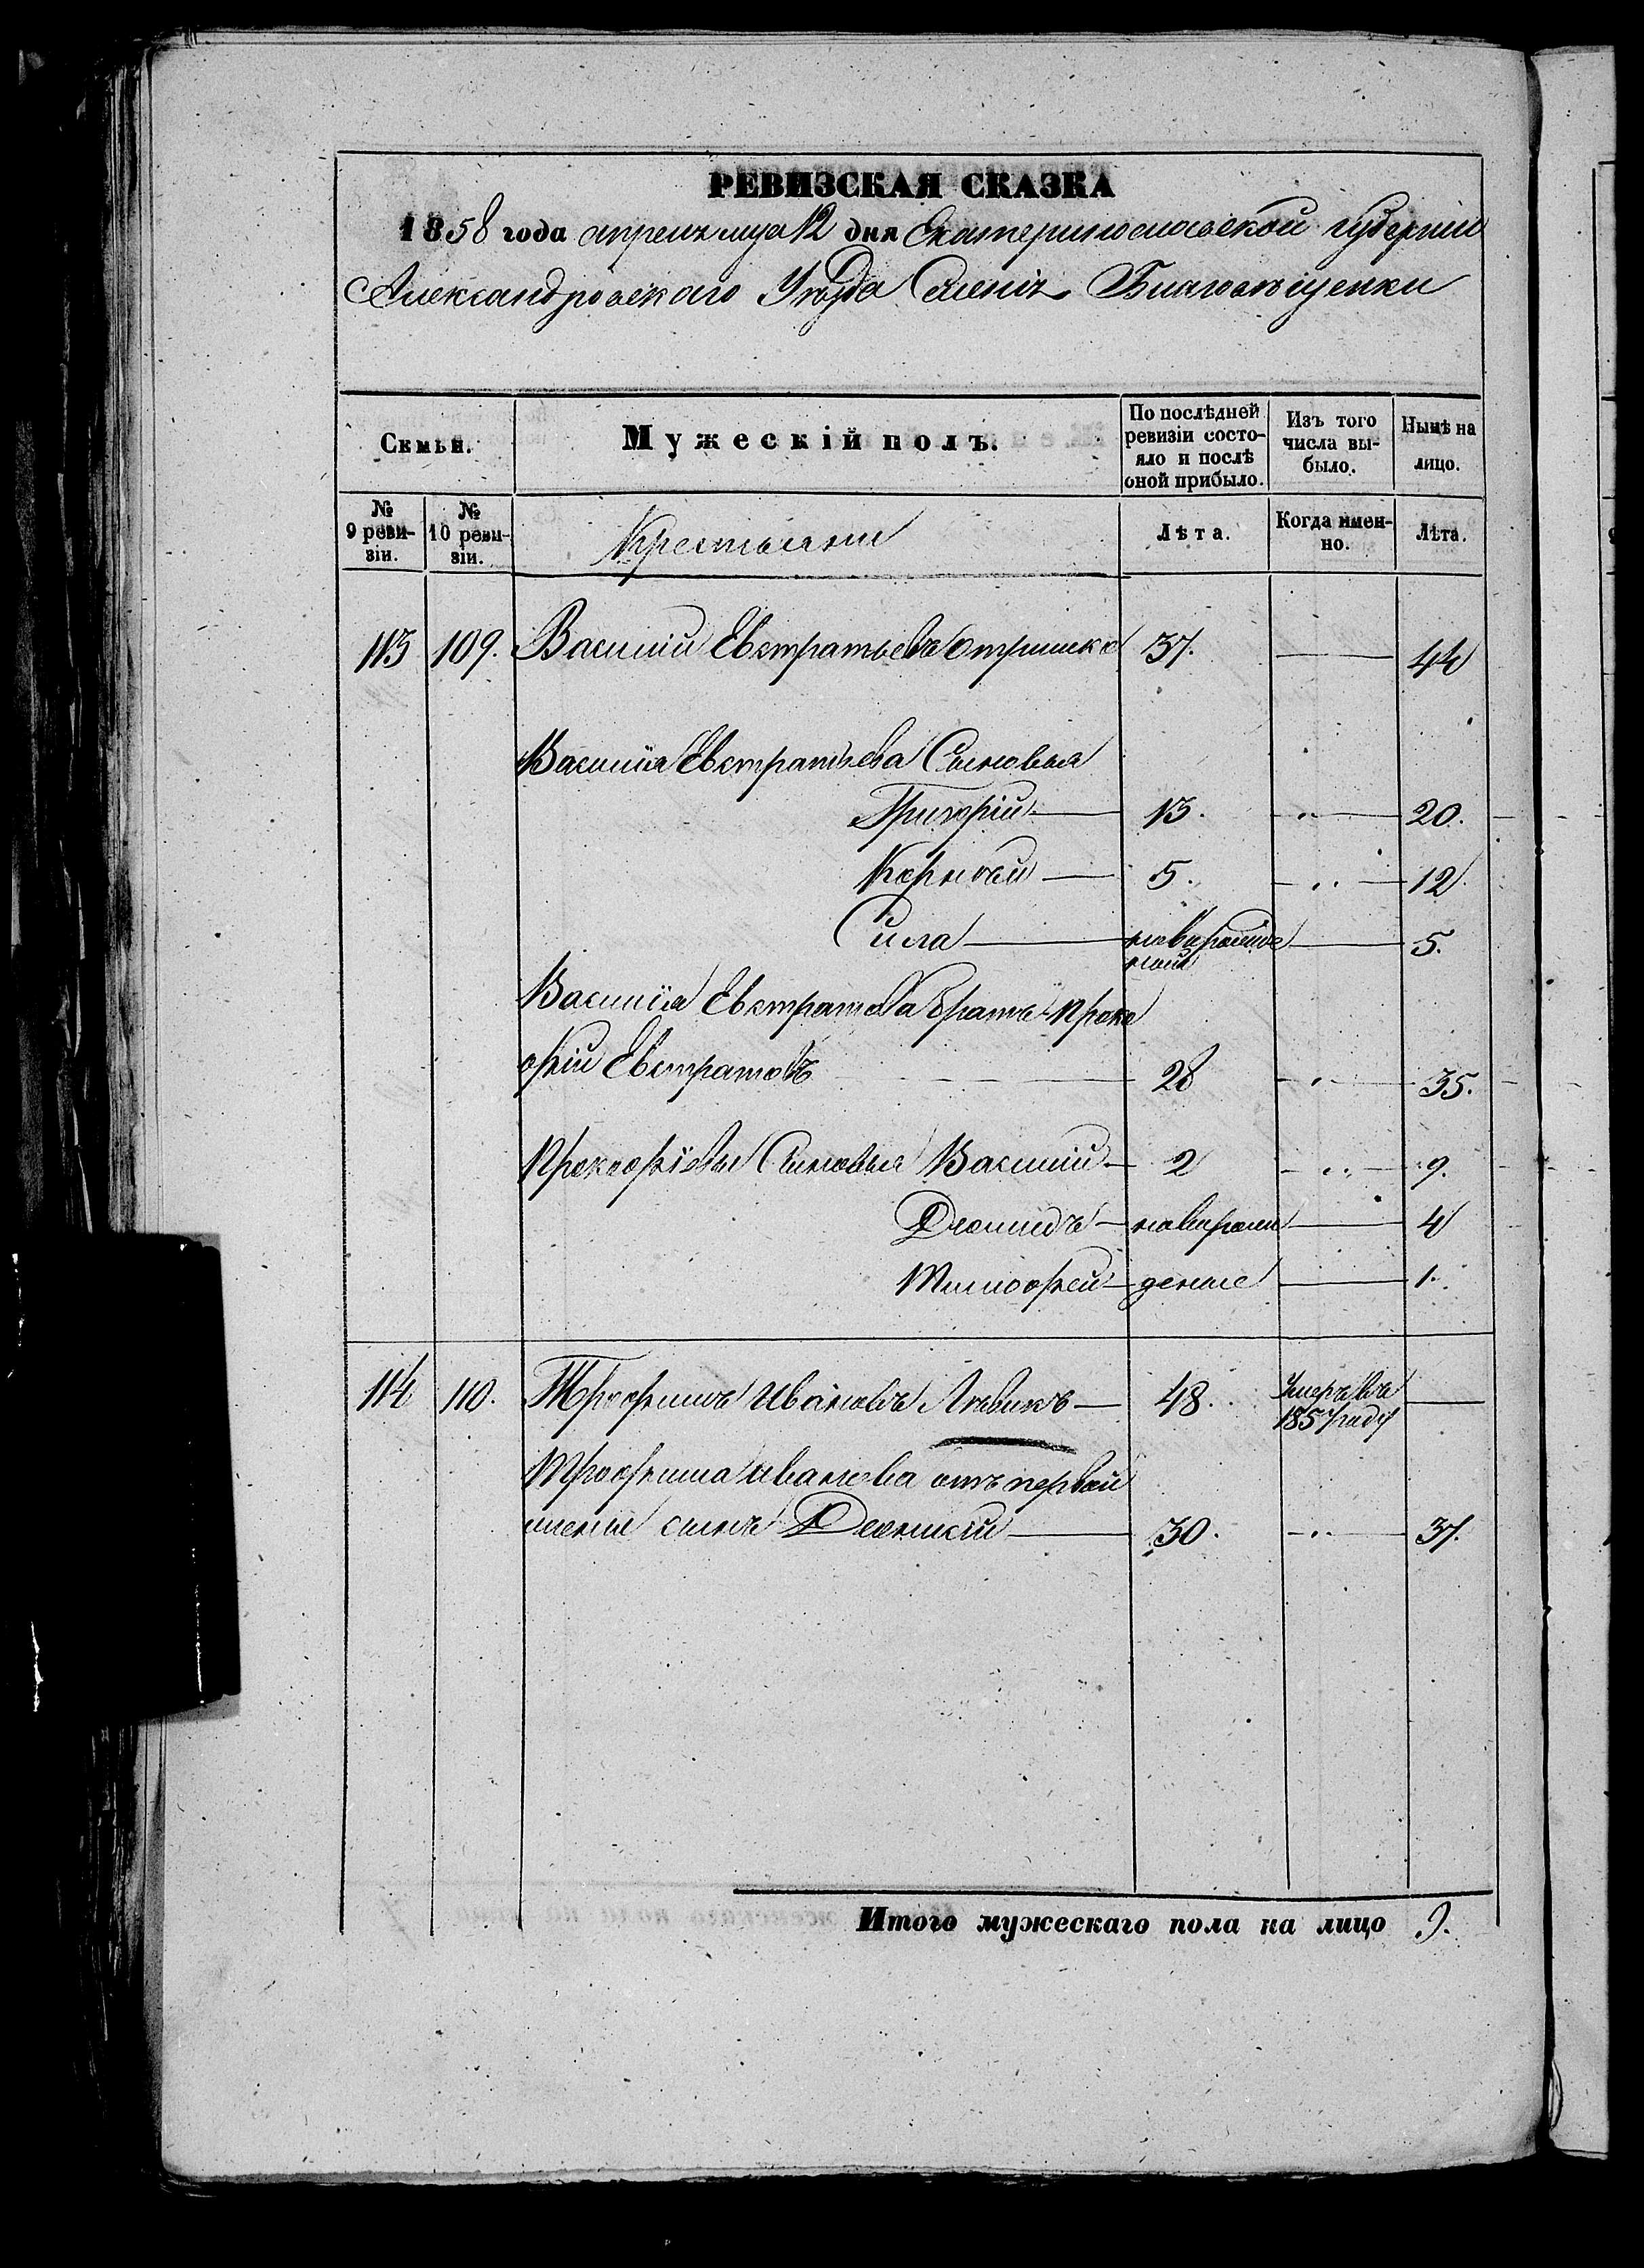 РЕВИЗСКАЯ СКАЗКА
1858 года апреля мца 12 дня Екатеринославской губернiи
Александровского Уѣзда Селенiя Благовѣщенки
Семьи.
Мужескiй полъ.
По послѣдней ревизiи состояло и послѣ оной прибыло.
Изъ того числа выбыло.
Нынѣ на лицо.
№ 9 ревизiи.
№ 10 ревизiи.
Крестьяни
Лѣта.
Когда именно.
Лѣта.
113 109. Василiй Евстратьевъ 37. 44
Василiя Евстратьева Сыновья
Григорiй 13. 20.
Корней 5. 12.
Сила новорожде 5.
ной
Василiя Евстратова братъ Проко
фiй Евстратовъ 28 35.
Прокофiевы Сыновья Василiй 2 9.
Дiомидъ новорож 4
Тимофей деные 1.
114 110. Трофимъ Ивановъ 48. Умеръ въ
1857 году
Трофима Иванова отъ первой
жены сынъ 30. 37.
Итого мужескаго пола на лицо 9.